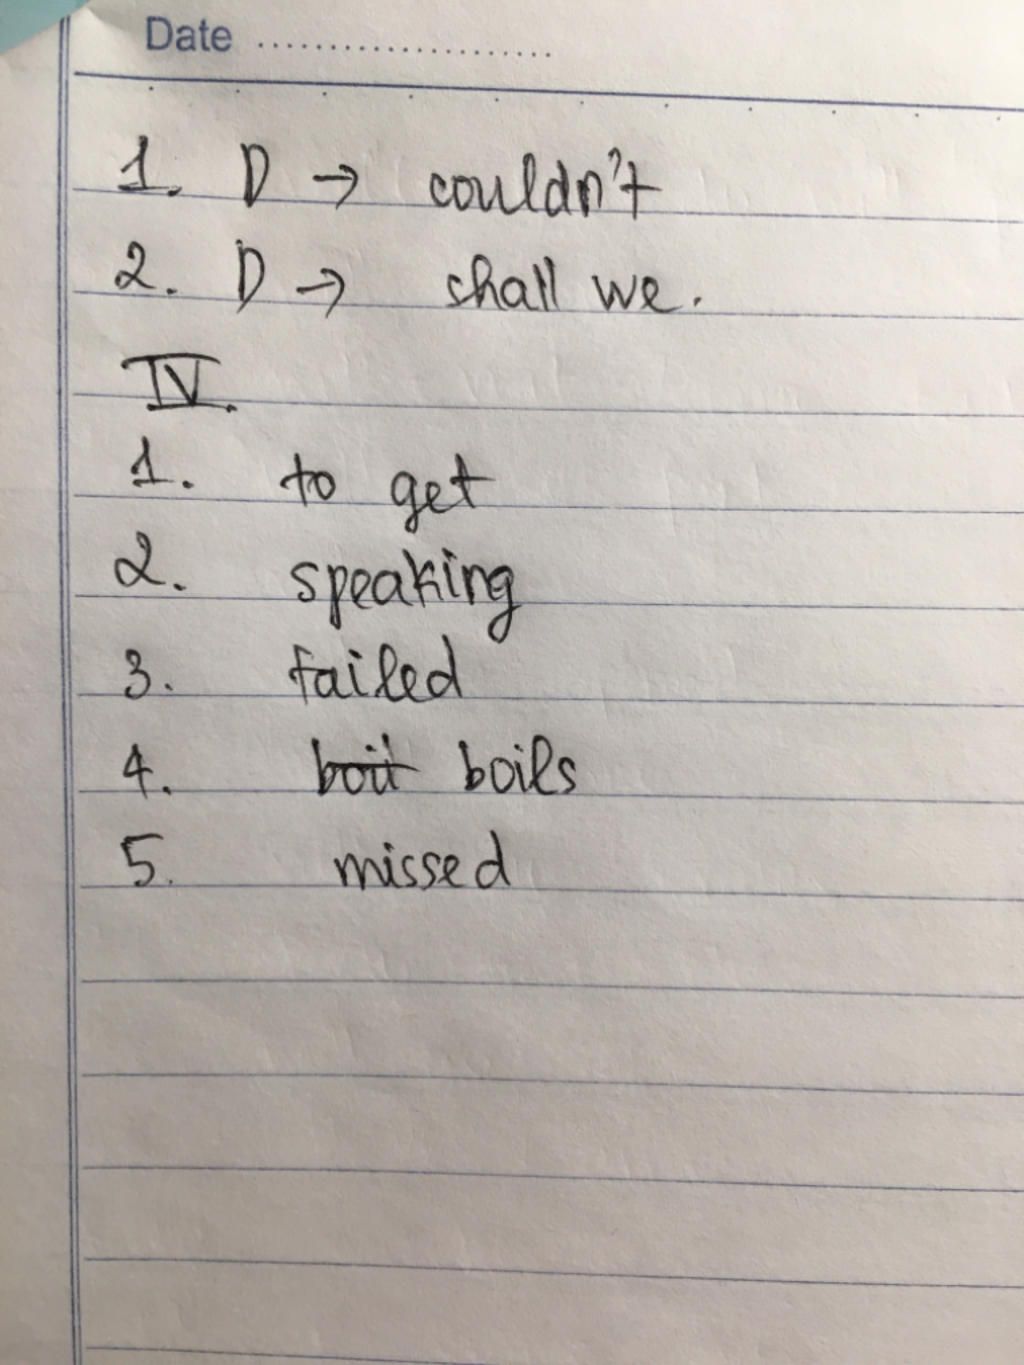 Date ....................
1. D → couldn't
2. D → shall we.
IV.
1. to get
2. speaking
3. failed
4. boil boils
5. missed